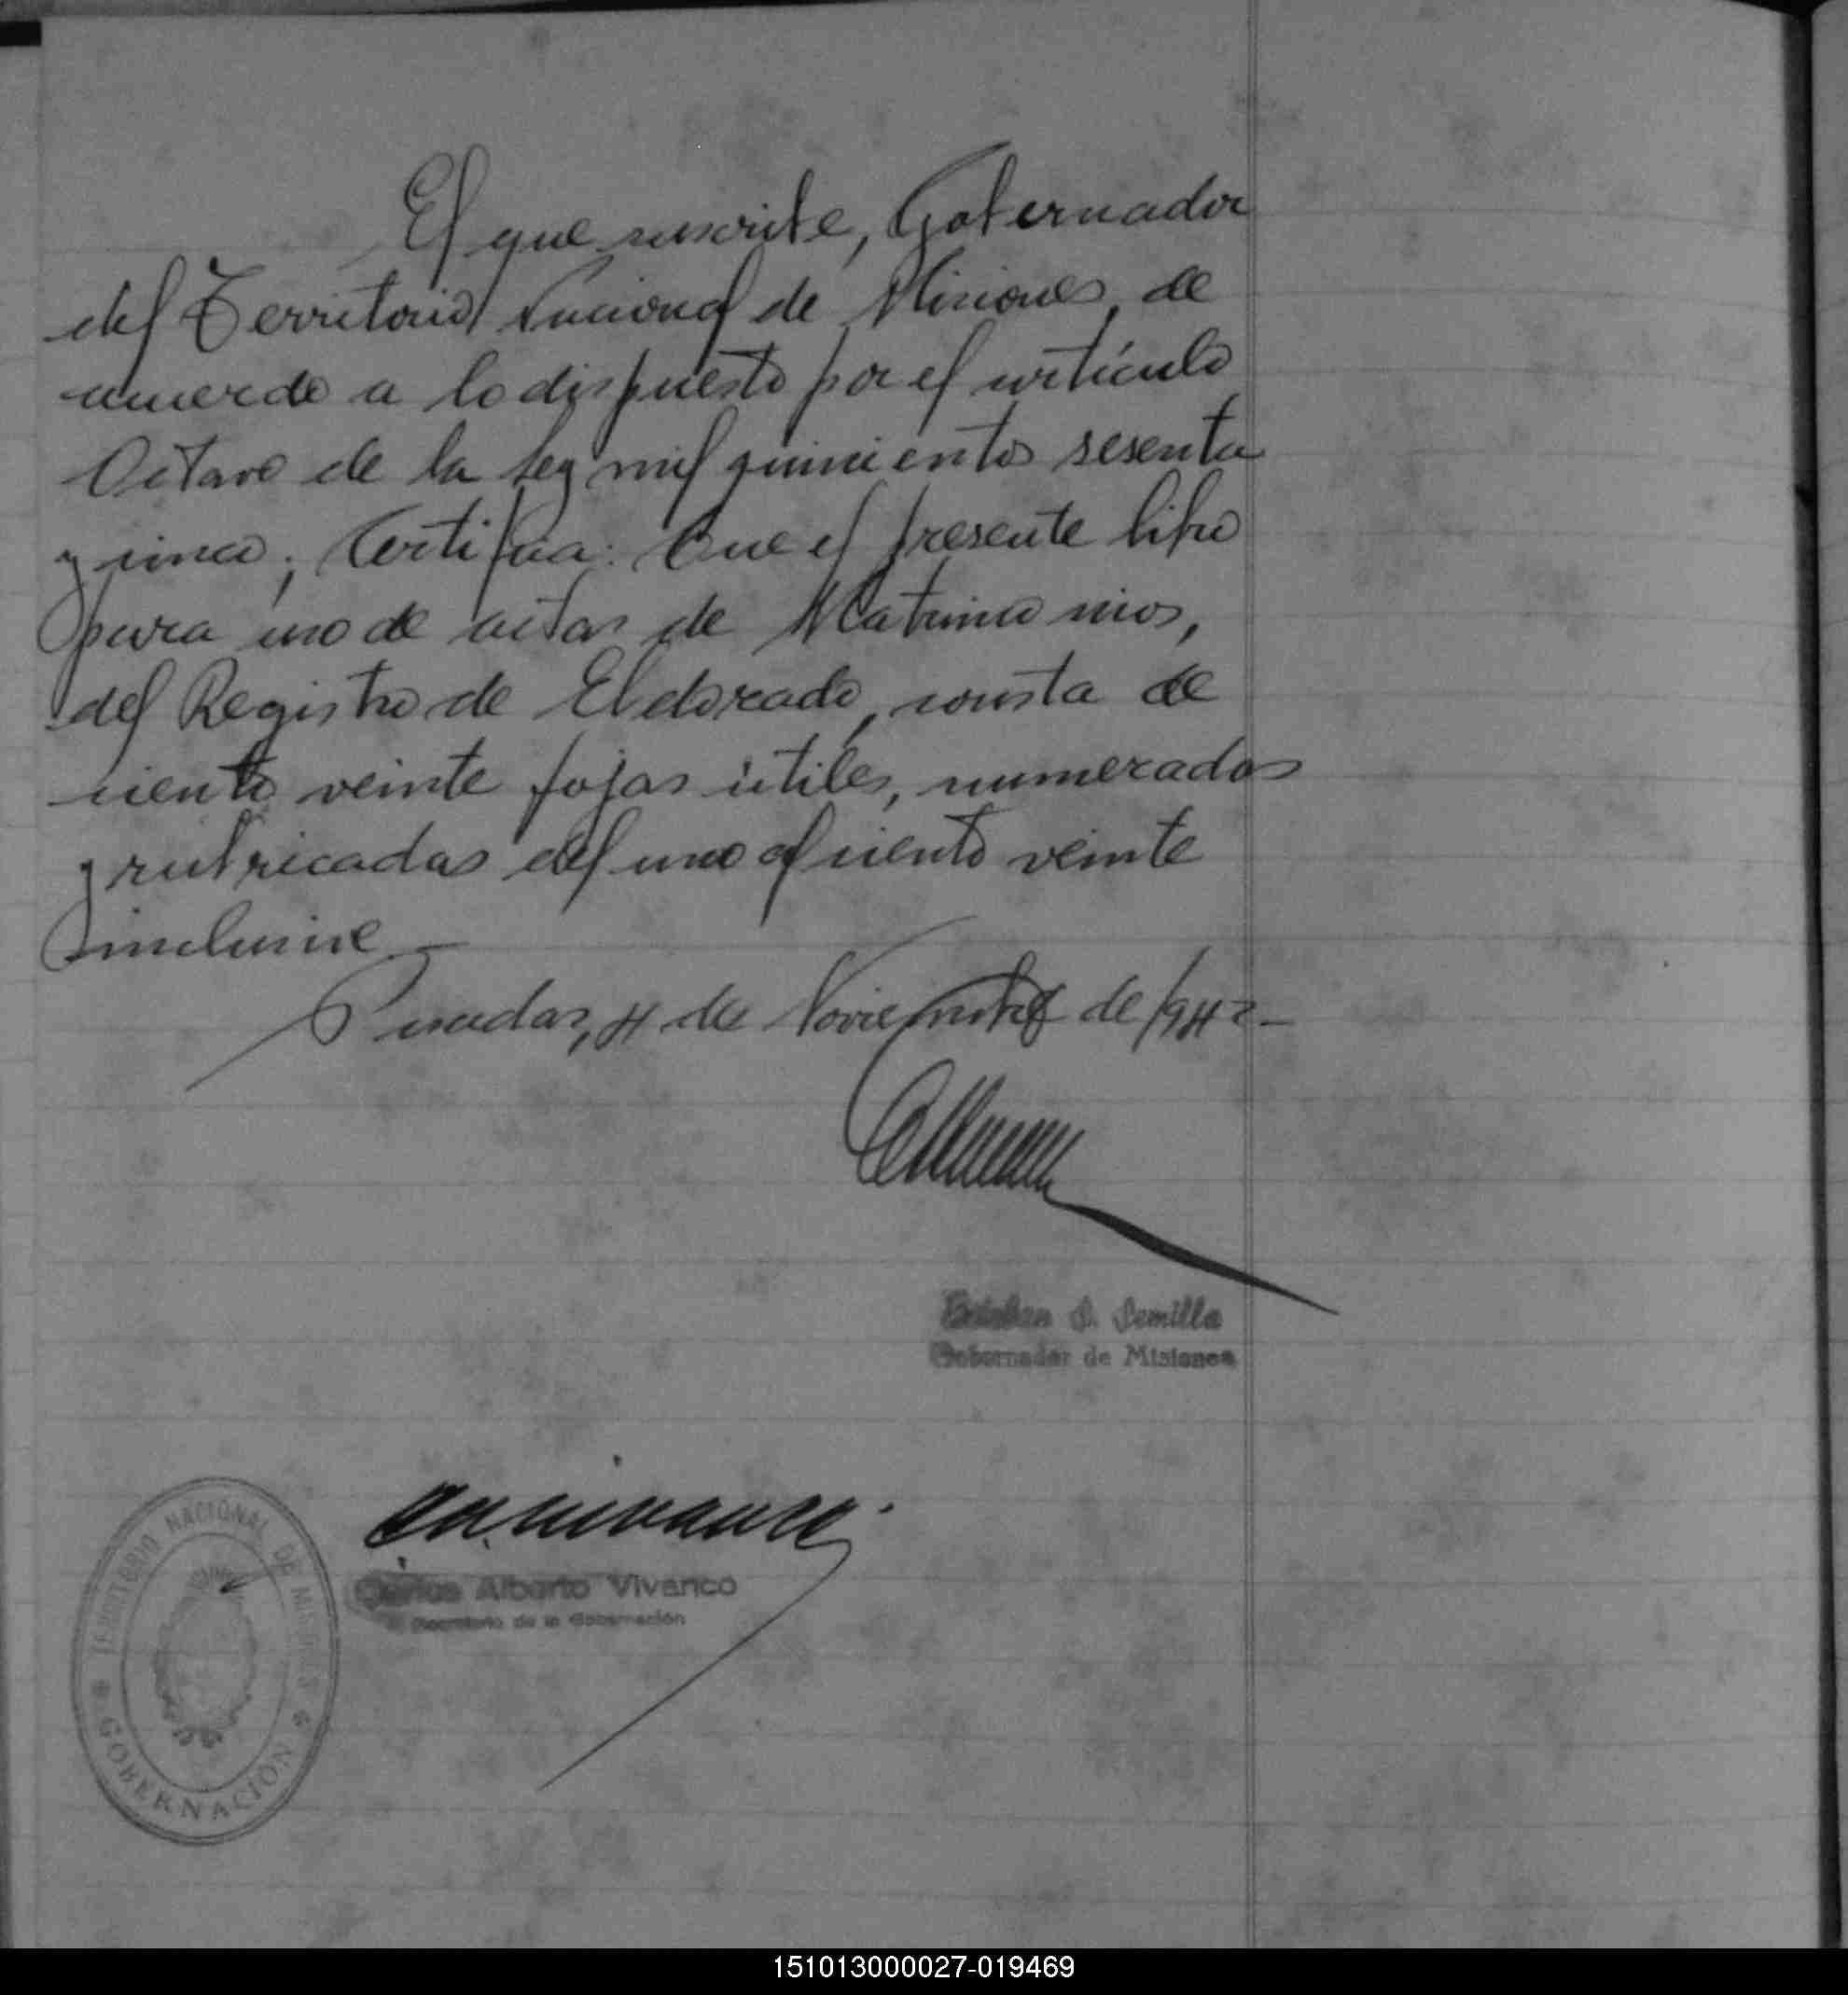 El que suscribe, Gobernador
del Territorio Nacional de Misiones, de
acuerdo a lo dispuesto por el artículo
Octavo de la Ley mil quinientos sesenta
y cinco; Certifica: Que el presente libro
para uso de actas de Matrimonios,
del Registro de Eldorado, consta de
ciento veinte fojas útiles, numeradas
y rubricadas del uno al ciento veinte
inclusive.—
Posadas, 4 de Noviembre de 1942-
Esteban S. Semilla
Gobernador de Misiones
C.A. Vivanco
Carlos Alberto Vivanco
Secretario de la Gobernación
TERRITORIO NACIONAL DE MISIONES
GOBERNACION
151013000027-019469